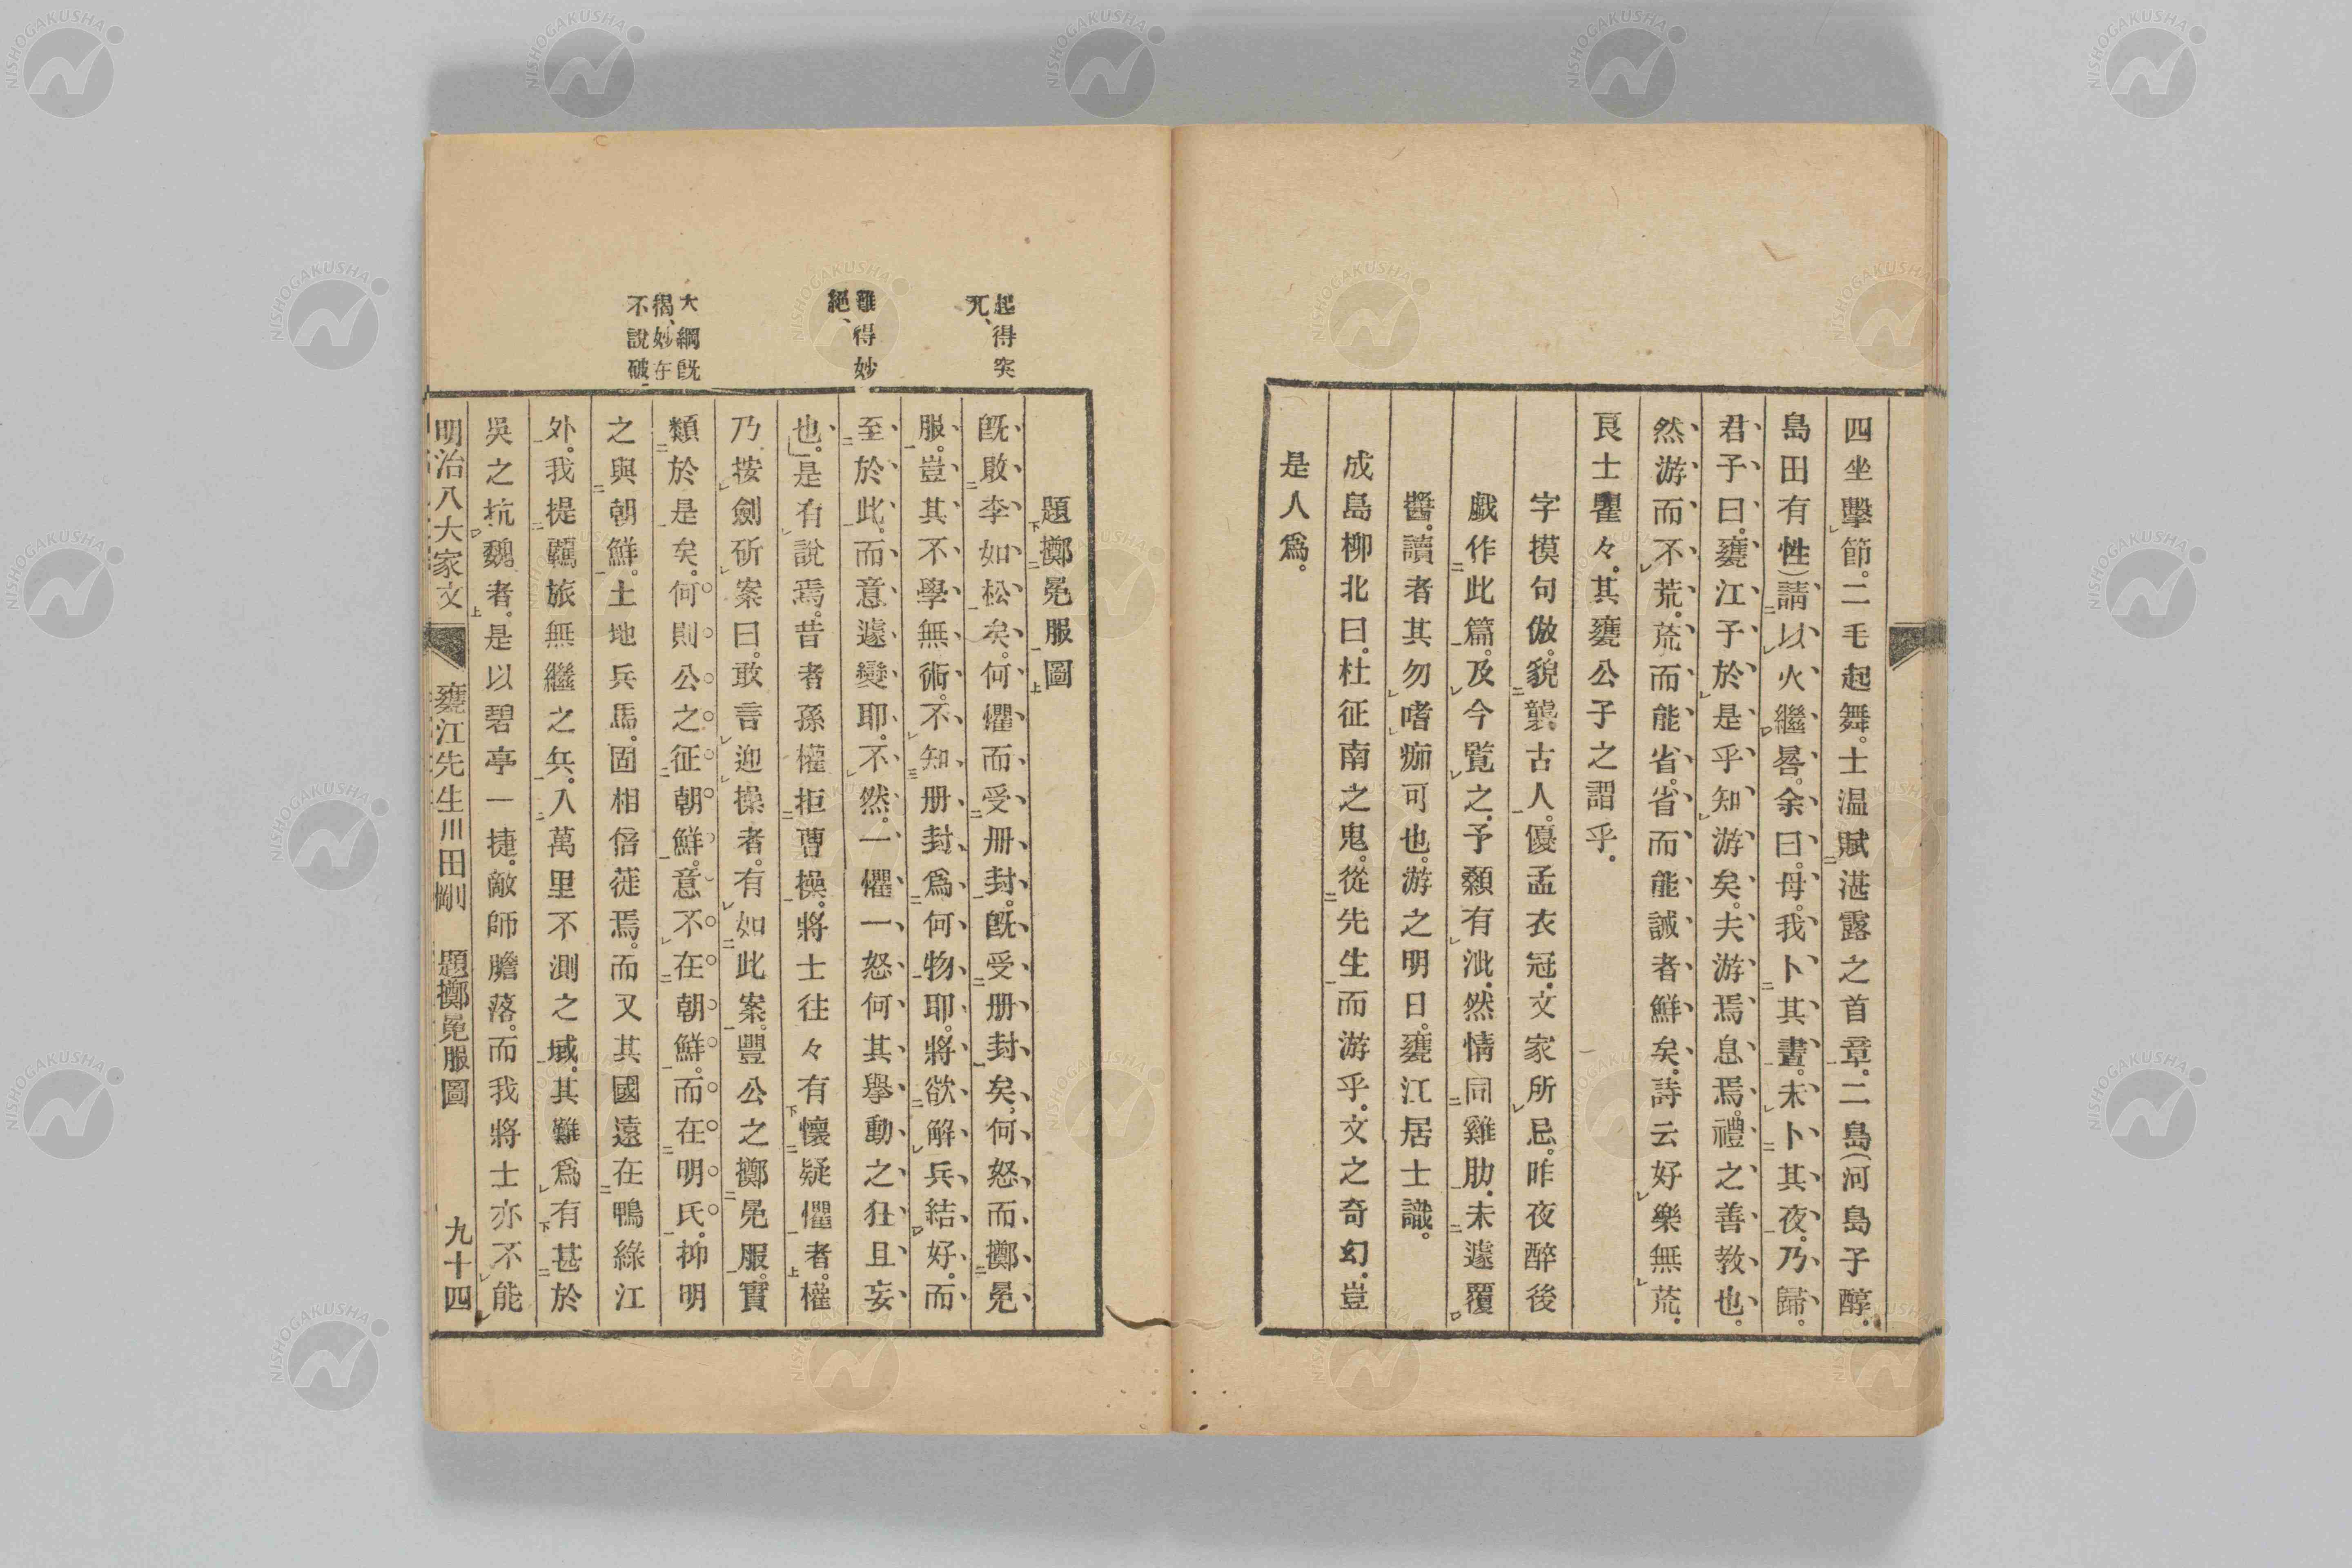 四坐擊節。二毛起舞。士温賦湛露之首章。二島(河島子醇。
島田有性)請以火繼晷。余曰。毋。我卜其晝。未卜其夜。乃歸。
君子曰。甕江子於是乎知游矣。夫游焉息焉。禮之善教也。
然游而不荒。荒而能省。省而能誡者鮮矣。詩云好樂無荒。
良士瞿々。其甕公子之謂乎。
字摸句倣。貌襲古人。優孟衣冠。文家所忌。昨夜醉後
戯作此篇。及今覧之。予顙有泚。然情同雞肋。未遽覆
醬。讀者其勿嗜痂可也。游之明日。甕江居士識。
成島柳北曰。杜征南之鬼。從先生而游乎。文之奇幻。豈
是人爲。
起得突
兀、
難得妙
絕、
大綱既
揭、妙在
不說破
題擲冕服圖
既敗李如松矣。何懼而受册封。既受册封矣。何怒而擲冕
服。豈其不學無術。不知册封爲何物耶。將欲解兵結好。而
至於此。而意遽變耶。不然。一懼一怒何其擧動之狂且妄
也。是有說焉。昔者孫權拒曹操。將士往々有懷疑懼者。權
乃按劍斫案曰。敢言迎操者。有如此案。豐公之擲冕服。實
類於是矣。何則公之征朝鮮。意不在朝鮮。而在明氏。抑明
之與朝鮮。土地兵馬。固相倍蓰焉。而又其國遠在鴨綠江
外。我提羈旅無繼之兵。入萬里不測之域。其難爲有甚於
吳之抗魏者。是以碧亭一捷。敵師膽落。而我將士亦不能
明治八大家文 甕江先生川田剛 題擲冕服圖 九十四